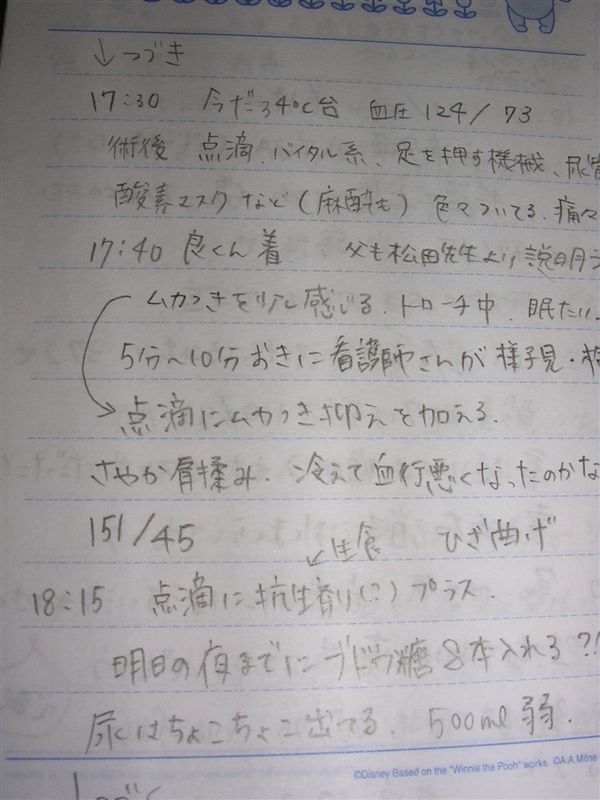 ↓つづき
17:30 今だ34℃台 血圧124/73
術後 点滴、バイタル系、足を押す機械、尿管
酸素マスクなど(麻酔も)色々ついてる。痛々
17:40 良くん着. 父も松田先生より説明う
ムカつきを少し感じる。トローチ中. 眠たい..
5分〜10分おきに看護師さんが様子見・
点滴にムカつき抑えを加える.
さやか肩揉み. 冷えて血行悪くなったのかな
151/45 ひざ曲げ
↙生食
18:15 点滴に抗生剤(?)プラス.
明日の夜までにブドウ糖8本入れる?!
尿はちょこちょこ出てる. 500ml弱.
©Disney Based on the "Winnie the Pooh" works. ©A.A.Milne
↓つづく